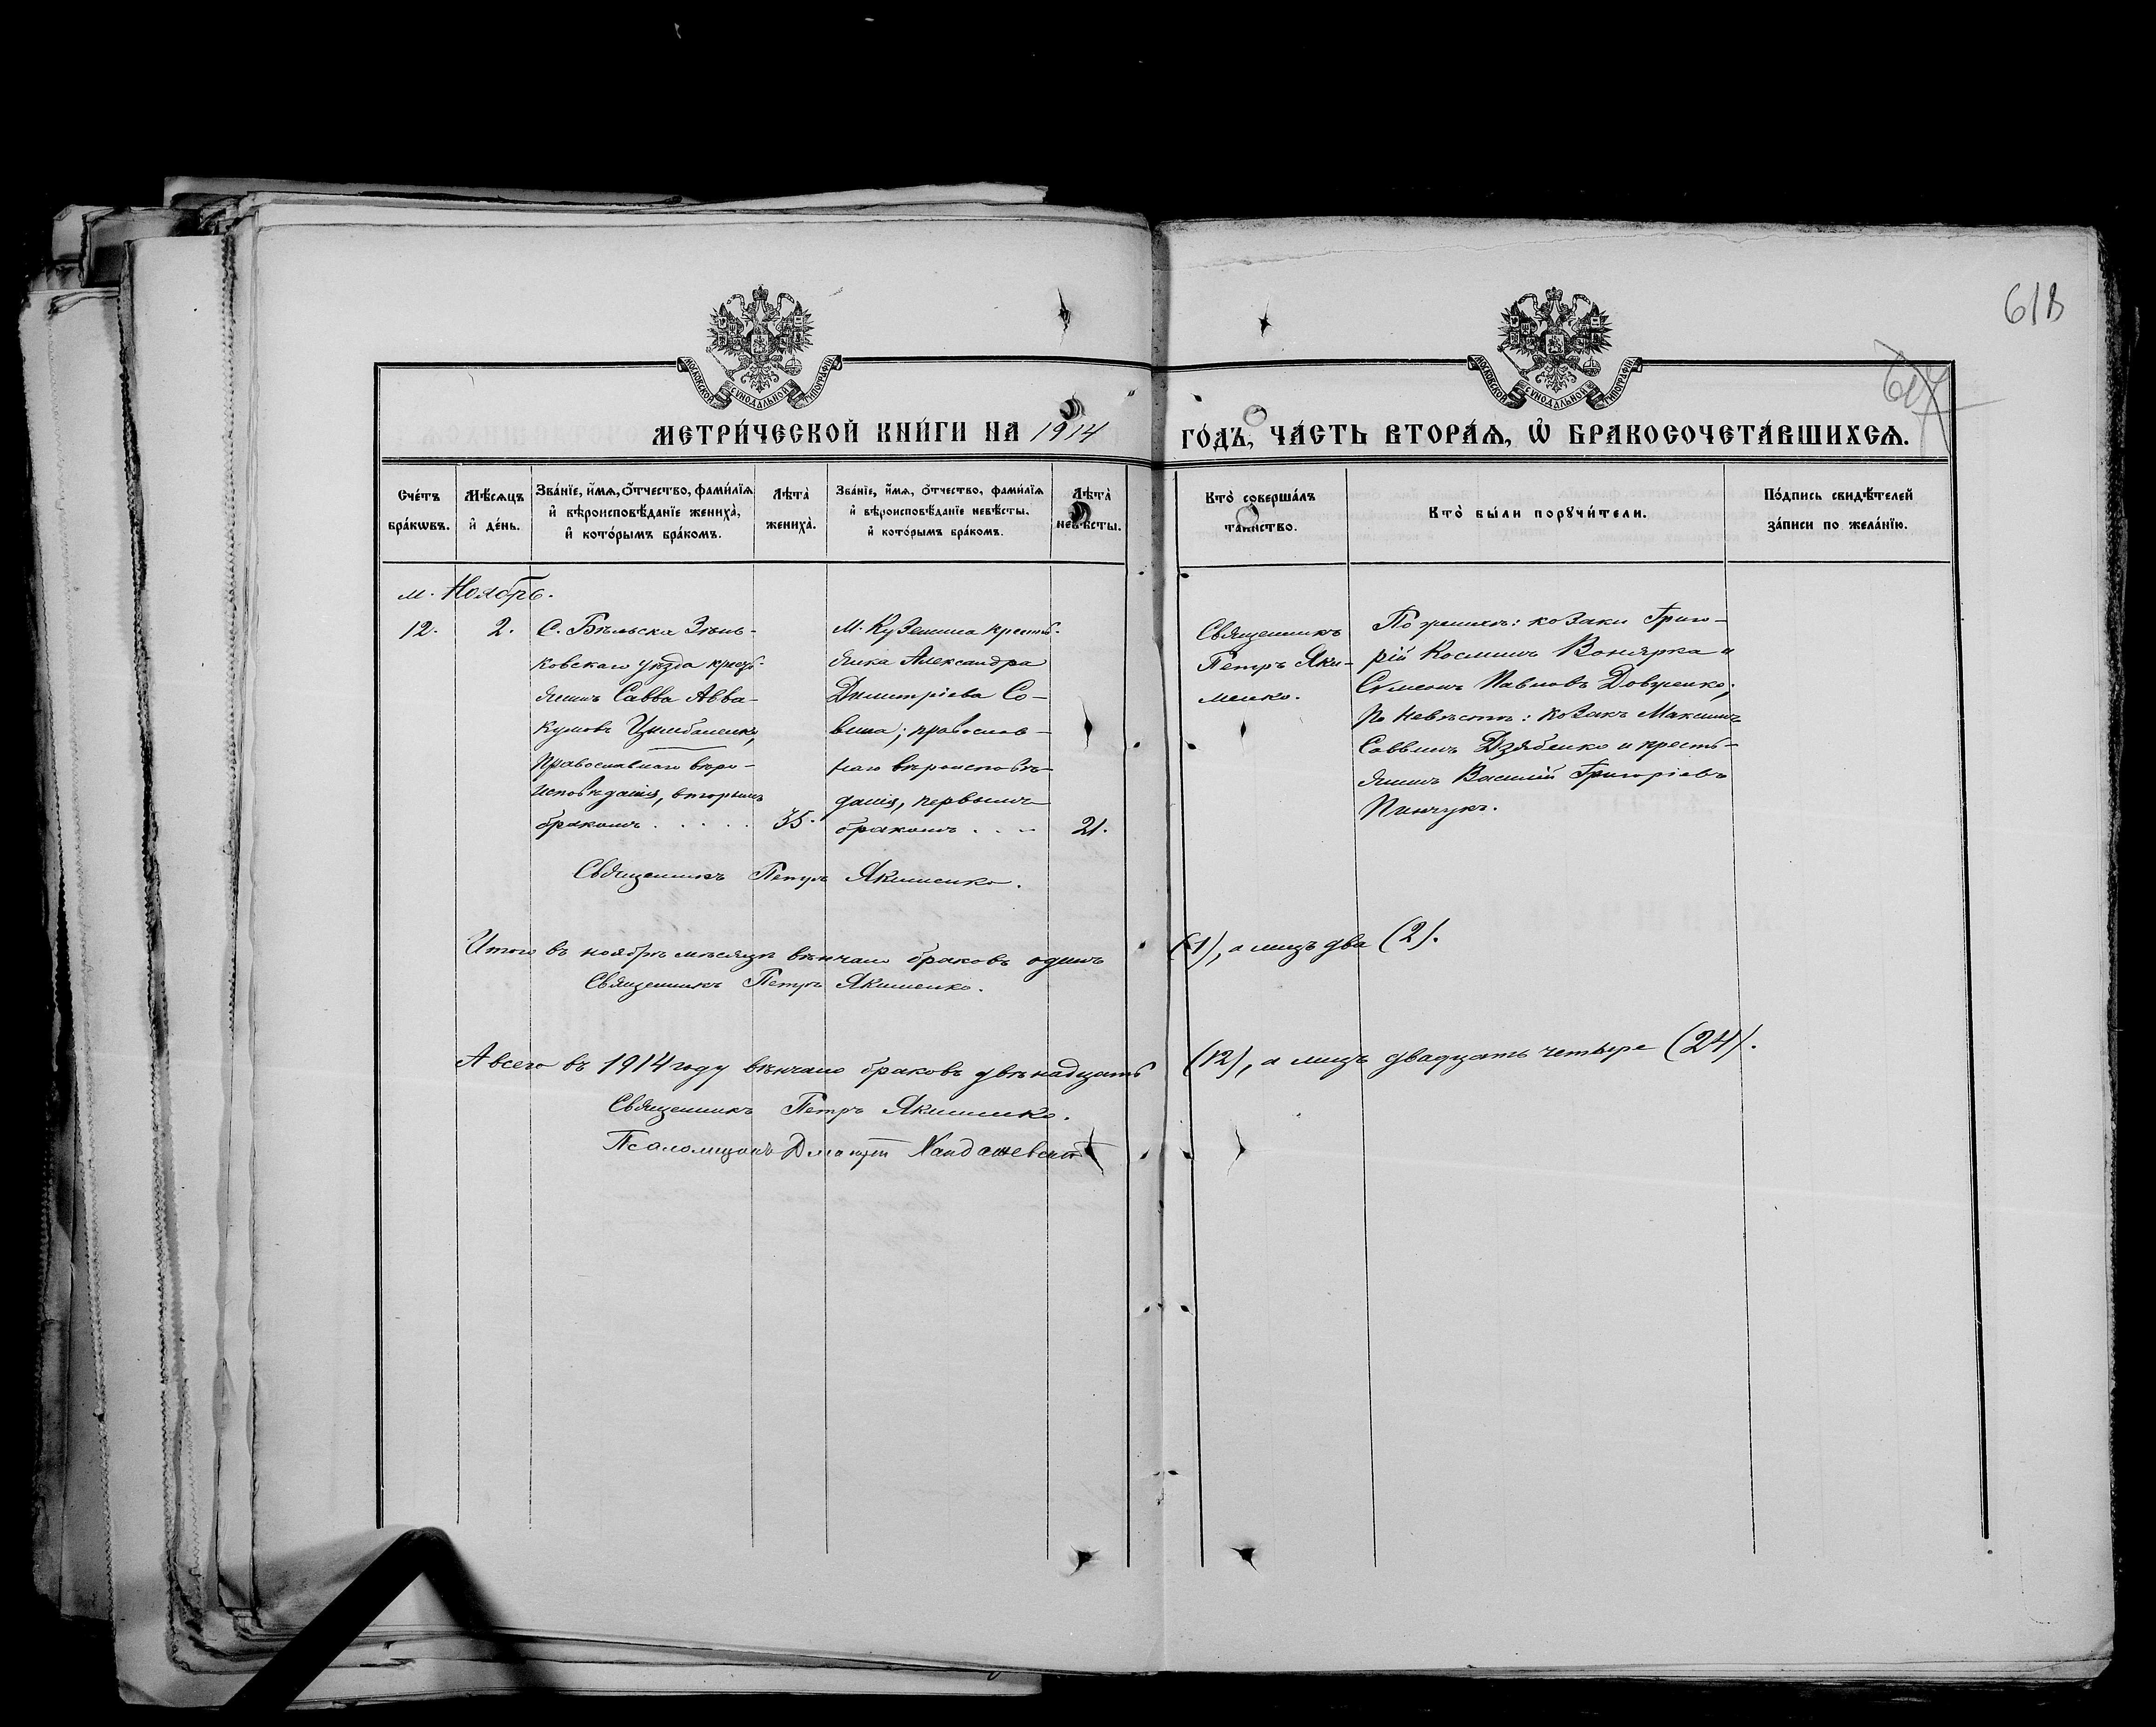 618
607
МОСКОВСКОЙ СѴНОДАЛЬНОЙ ТИПОГРАФІИ
МОСКОВСКОЙ СѴНОДАЛЬНОЙ ТИПОГРАФІИ
МЕТРИ́ЧЕСКОЙ КНИ́ГИ НА 1914 ГО́ДЪ, ЧА́СТЬ ВТОРА́Ѧ, Ѡ҆ БРАКОСОЧЕТА́ВШИХСѦ.
Сче́тъ бра́кѡвъ.
Мѣ́сѧцъ и҆ де́нь.
Зва́нїе, и҆́мѧ, ѻ҆́тчество, фами́лїѧ и҆ вѣроисповѣ́данїе жениха̀, и҆ кото́рымъ бра́комъ.
Лѣта̀ жениха̀.
Зва́нїе, и҆́мѧ, ѻ҆́тчество, фами́лїѧ и҆ вѣроисповѣ́данїе невѣ́сты, и҆ кото́рымъ бра́комъ.
Лѣта̀ невѣ́сты.
Кто̀ соверша́лъ та́инство.
Кто̀ бы́ли порꙋчи́тели.
По́дпись свидѣ́телей за́писи по жела́нїю.
м. Ноябрь.
12.
2.
С. Бѣльска Зѣнь-
ковскаго уѣзда кресть-
янинъ Савва Авва-
кумовъ Цимбаленко,
православнаго вѣро-
исповѣданія, вторымъ
бракомъ . . . . .
35.
М. Куземина кресть-
янка Александра
Димитріева Со-
вина; православ-
наго вѣроисповѣ-
данія, первымъ
бракомъ . . .
21.
Священникъ
Петръ Яки-
менко.
По женихѣ: козаки Григо-
рій Косминъ Вонярка и
Сѵмеонъ Павловъ Довженко;
по невѣстѣ: козакъ Максимъ
Саввинъ Дзябенко и кресть-
янинъ Василій Григоріевъ
Пинчукъ.
Священникъ Петръ Якименко.
Итого въ ноябрѣ мѣсяцѣ вѣнчано браковъ одинъ (1), а лицъ два (2).
Священникъ Петръ Якименко.
А всего въ 1914 году вѣнчано браковъ двѣнадцать (12), а лицъ двадцать четыре (24).
Священникъ Петръ Якименко.
Псаломщикъ